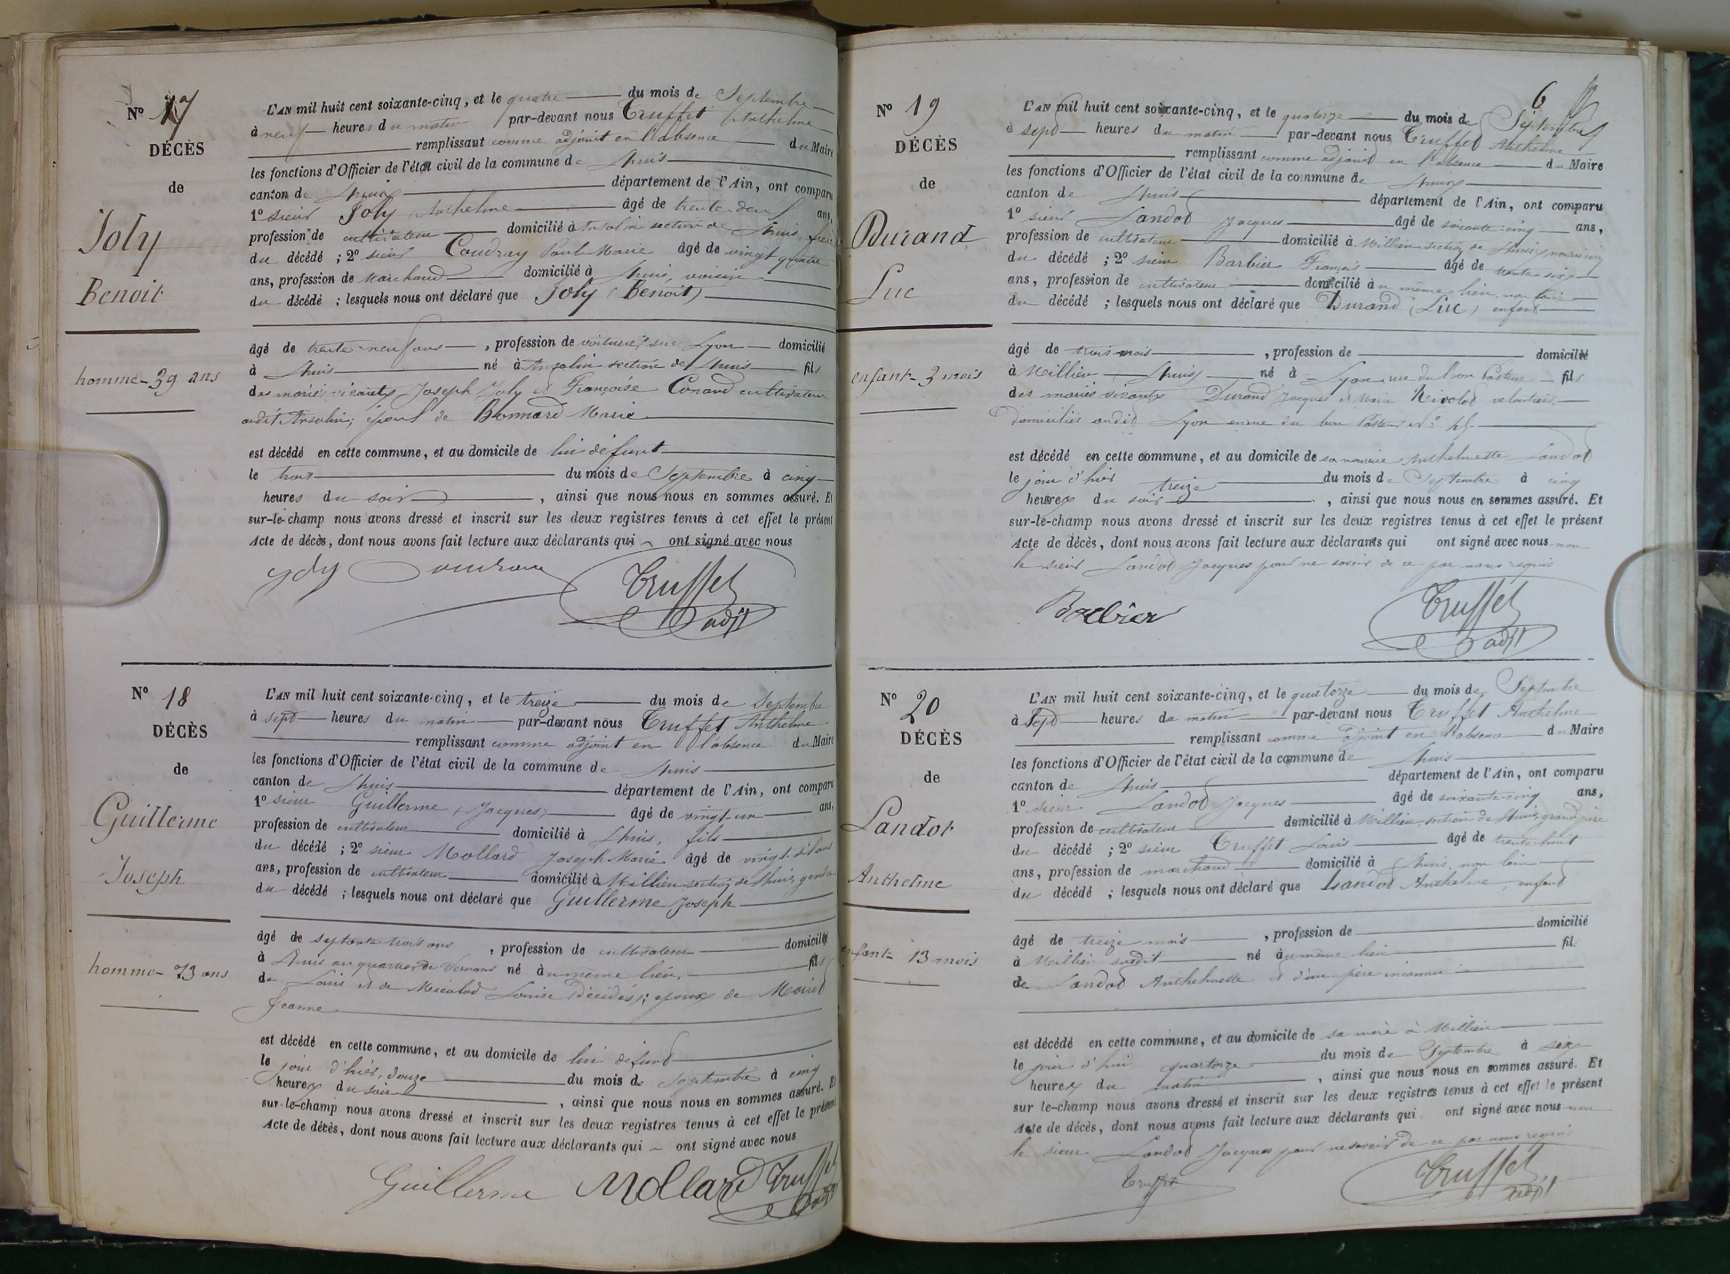 N° 17
DÉCÈS
de
Joly
Benoit
homme - 39 ans
L'AN mil huit cent soixante-cinq, et le quatre du mois de Septembre
à neuf heures du matin par-devant nous Truffet Anthelme
remplissant comme adjoint en l'absence du Maire
les fonctions d'Officier de l'état civil de la commune de Lhuis
canton de Lhuis département de l'Ain, ont comparu
1° sieur Joly Anthelme âgé de trente deux ans,
profession de cultivateur domicilié à Ansolin section de Lhuis, frère
du décédé ; 2° sieur Coudray Paul Marie âgé de vingt quatre
ans, profession de Marchand domicilié à Lhuis, voisin
du décédé ; lesquels nous ont déclaré que Joly (Benoit)
âgé de trente neuf ans, profession de voiturier sur Lyon domicilié
à Lhuis né à Ansolin section de Lhuis fils
des mariés vivants Joseph Joly et Françoise Conand cultivateurs
audit Ansolin, époux de Bonnard Marie
est décédé en cette commune, et au domicile de lui défunt
le trois du mois de Septembre à cinq
heures du soir, ainsi que nous nous en sommes assuré. Et
sur-le-champ nous avons dressé et inscrit sur les deux registres tenus à cet effet le présent
Acte de décès, dont nous avons fait lecture aux déclarants qui ont signé avec nous
Joly Coudray Truffet
adjt
N° 18
DÉCÈS
de
Guillerme
Joseph
homme - 73 ans
L'AN mil huit cent soixante-cinq, et le treize du mois de Septembre
à sept heures du matin par-devant nous Truffet Anthelme
remplissant comme adjoint en l'absence du Maire
les fonctions d'Officier de l'état civil de la commune de Lhuis
canton de Lhuis département de l'Ain, ont comparu
1° sieur Guillerme (Jacques) âgé de vingt un ans,
profession de cultivateur domicilié à Lhuis, fils
du décédé ; 2° sieur Mollard Joseph Marie âgé de vingt
ans, profession de cultivateur domicilié à Millieu section de Lhuis, gendre
du décédé ; lesquels nous ont déclaré que Guillerme Joseph
âgé de septante trois ans, profession de cultivateur domicilié
à Lhuis au quartier de né au même lieu, fils
de Louis et de Louise décédés ; époux de
Jeanne
est décédé en cette commune, et au domicile de lui défunt
le jour d'hier, douze du mois de Septembre à cinq
heures du soir, ainsi que nous nous en sommes assuré. Et
sur-le-champ nous avons dressé et inscrit sur les deux registres tenus à cet effet le présent
Acte de décès, dont nous avons fait lecture aux déclarants qui ont signé avec nous
Guillerme Mollard Truffet
adjt
6
N° 19
DÉCÈS
de
Durand
Luc
enfant - 3 mois
L'AN mil huit cent soixante-cinq, et le quatorze du mois de Septembre
à sept heures du matin par-devant nous Truffet Anthelme
remplissant comme adjoint en l'absence du Maire
les fonctions d'Officier de l'état civil de la commune de Lhuis
canton de Lhuis département de l'Ain, ont comparu
1° sieur Landot Jacques âgé de soixante-cinq ans,
profession de cultivateur domicilié à Millieu section de Lhuis, nourricier
du décédé ; 2° sieur Barbier François âgé de trente six
ans, profession de cultivateur domicilié au même lieu, voisin
du décédé ; lesquels nous ont déclaré que Durand (Luc) enfant
âgé de trois mois, profession de domicilié
à Millieu Lhuis né à Lyon rue du bon Pasteur fils
des mariés vivants Durand Jacques et Marie
domiciliés audit Lyon susdite rue du bon Pasteur N°
est décédé en cette commune, et au domicile de sa nourrice Anthelmette Landot
le jour d'hier treize du mois de Septembre à cinq
heures du soir, ainsi que nous nous en sommes assuré. Et
sur-le-champ nous avons dressé et inscrit sur les deux registres tenus à cet effet le présent
Acte de décès, dont nous avons fait lecture aux déclarants qui ont signé avec nous non
le sieur Landot Jacques pour ne savoir de ce par nous requis
Barbier Truffet
adjt
N° 20
DÉCÈS
de
Landot
Anthelme
enfant - 13 mois
L'AN mil huit cent soixante-cinq, et le quatorze du mois de Septembre
à sept heures du matin par-devant nous Truffet Anthelme
remplissant comme adjoint en l'absence du Maire
les fonctions d'Officier de l'état civil de la commune de Lhuis
canton de Lhuis département de l'Ain, ont comparu
1° sieur Landot Jacques âgé de soixante-cinq ans,
profession de cultivateur domicilié à Millieu section de Lhuis, grand père
du décédé ; 2° sieur Truffet Louis âgé de trente huit
ans, profession de marchand domicilié à Lhuis, non
du décédé ; lesquels nous ont déclaré que Landot Anthelme, enfant
âgé de treize mois, profession de domicilié
à Millieu susdit né au même lieu fils
de Landot Anthelmette et d'un père inconnu
est décédé en cette commune, et au domicile de sa mère à Millieu
le jour d'hui quatorze du mois de Septembre à six
heures du matin, ainsi que nous nous en sommes assuré. Et
sur-le-champ nous avons dressé et inscrit sur les deux registres tenus à cet effet le présent
Acte de décès, dont nous avons fait lecture aux déclarants qui ont signé avec nous non
le sieur Landot Jacques pour ne savoir de ce par nous requis
Truffet Truffet
adjt